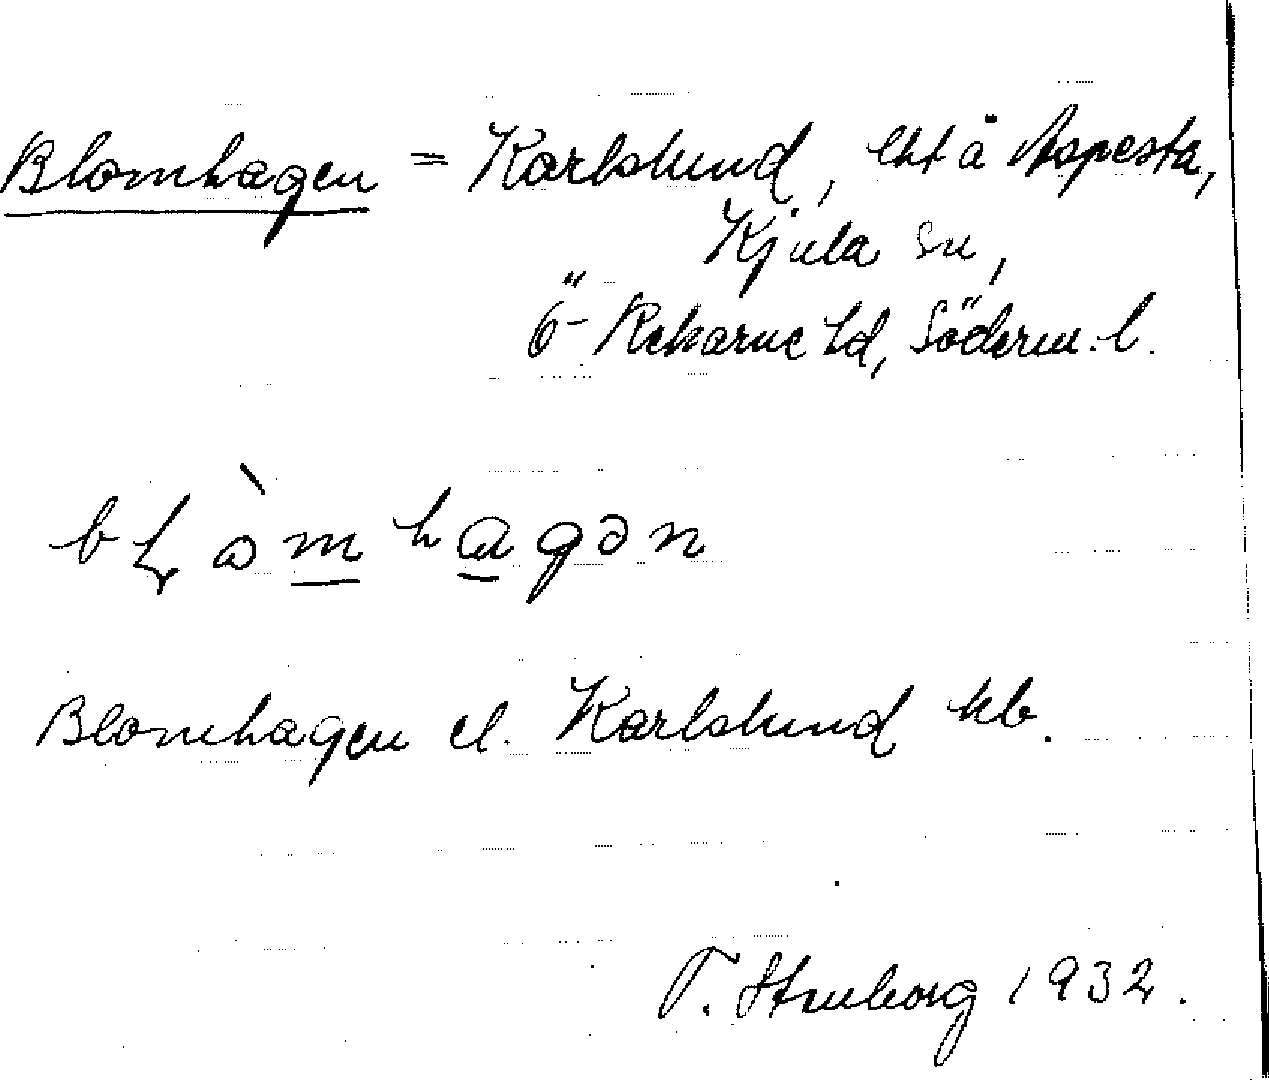 Blomhagen = Karlslund, lht å Aspesta,
Kjula sn,
Ö-Rekarne hd, Söderm. l.
blòmhagən
Blomhagen el. Karlslund kb.
T. Stenborg 1932.